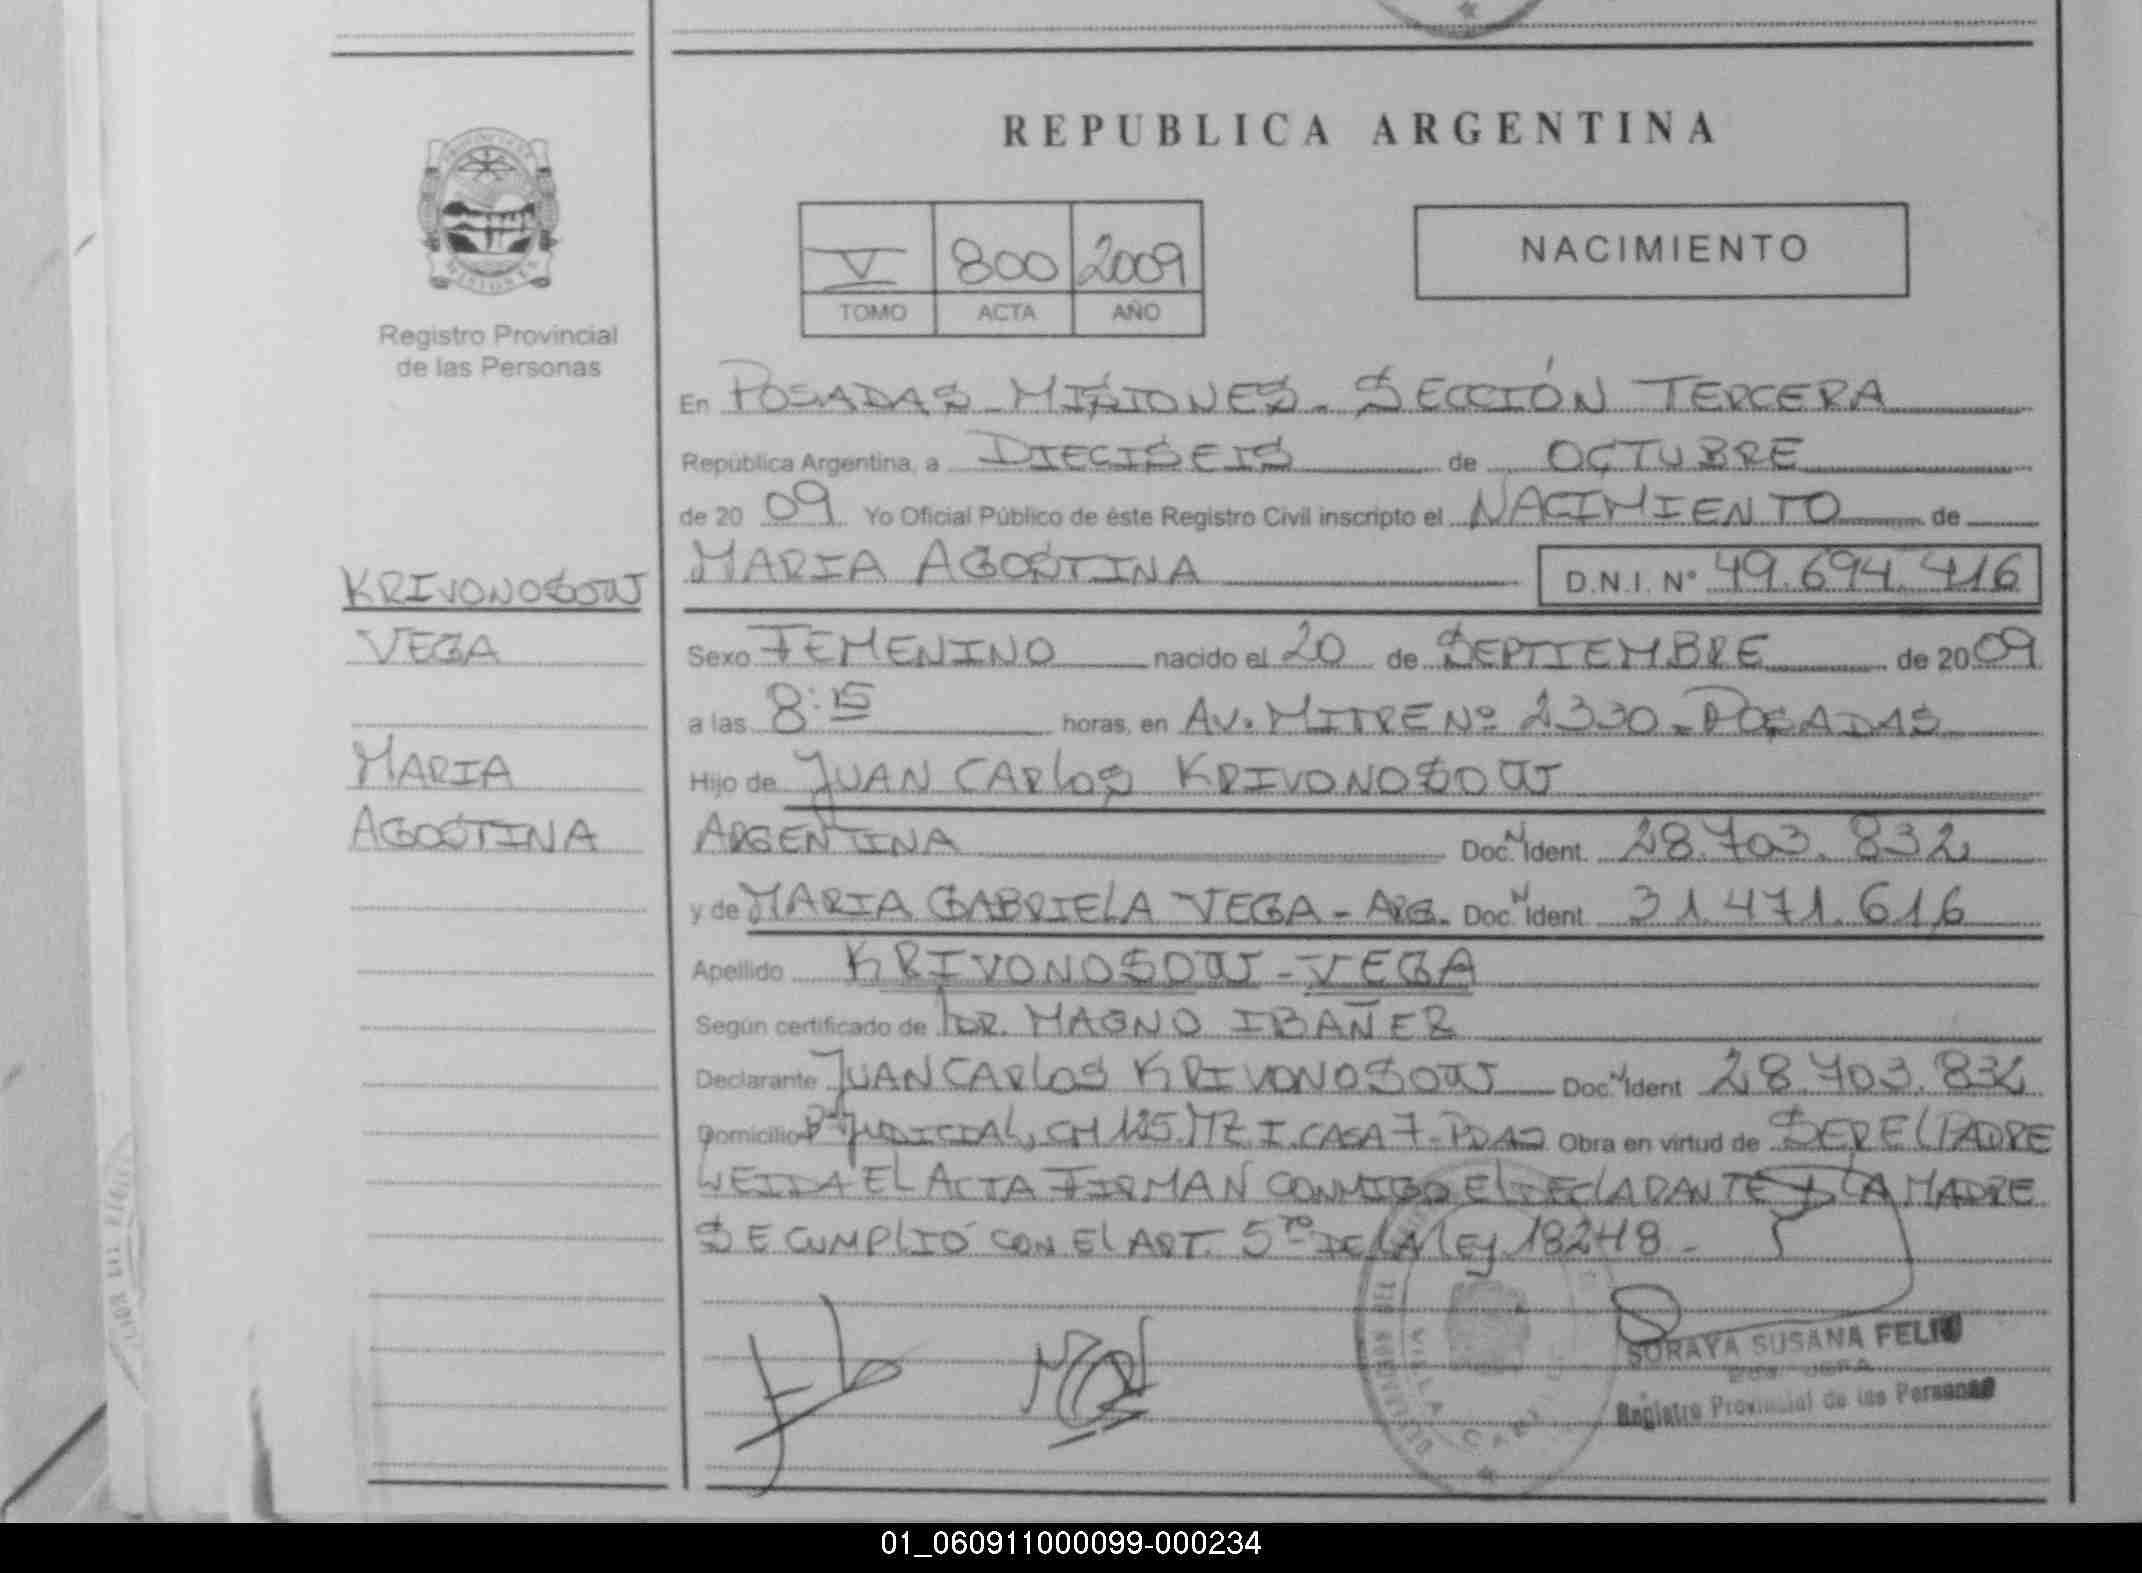 REPUBLICA ARGENTINA
V 800 2009
TOMO ACTA AÑO
NACIMIENTO
Registro Provincial
de las Personas
KRIVONOSOW
VEGA
MARIA
AGOSTINA
En POSADAS - MISIONES - SECCIÓN TERCERA
República Argentina, a DIECISEIS de OCTUBRE
de 20 09 Yo Oficial Público de éste Registro Civil inscripto el NACIMIENTO de
MARIA AGOSTINA D.N.I. N° 49.694.416
Sexo FEMENINO nacido el 20 de SEPTIEMBRE de 20 09
a las 8:15 horas, en AV. MITRE Nº 2330 - POSADAS
Hijo de JUAN CARLOS KRIVONOSOW
ARGENTINA Doc. N Ident. 28.703.832
y de MARIA GABRIELA VEGA - ARG. Doc. N Ident. 31.471.616
Apellido KRIVONOSOW - VEGA
Según certificado de DR. MAGNO IBAÑEZ
Declarante JUAN CARLOS KRIVONOSOW Doc. N Ident 28.703.832
Domicilio Bº JUDICIAL, CH 125. MZ I. CASA 7 - PDAS Obra en virtud de SER EL PADRE
LEIDA EL ACTA FIRMAN CONMIGO EL DECLARANTE Y LA MADRE
SE CUMPLIÓ CON EL ART. 5to DE LA LEY 18248 -
SORAYA SUSANA FELIU
JEFA
Registro Provincial de las Personas
VILLA CABELLO
01_060911000099-000234